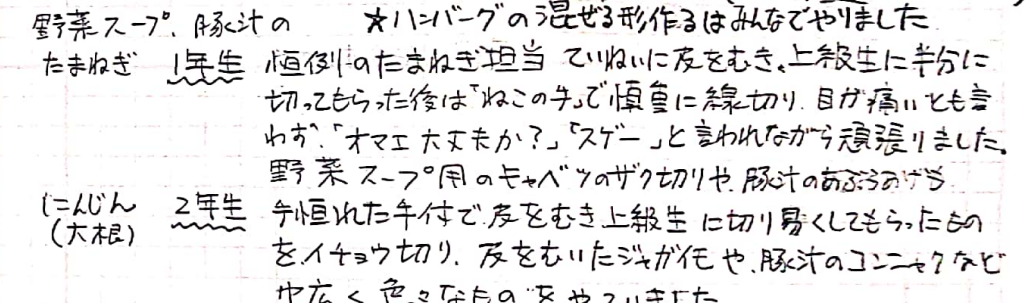 野菜スープ、豚汁の ★ハンバーグの混ぜる形作るはみんなでやりました
たまねぎ 1年生 恒例のたまねぎ担当 ていねいに皮をむき、上級生に半分に
切ってもらった後は「ねこの手」で慎重に線切り、目が痛いとも言
わず、「オマエ大丈夫か?」「スゲー」と言われながら頑張りました。
野菜スープ用のキャベツのザク切りや、豚汁のあぶらあげも
にんじん 2年生 手慣れた手付で、皮をむき上級生に切り易くしてもらったもの
(大根) をイチョウ切り、皮をむいたジャガイモや、豚汁のコンニャクなど
巾広く色々なものをやっていました